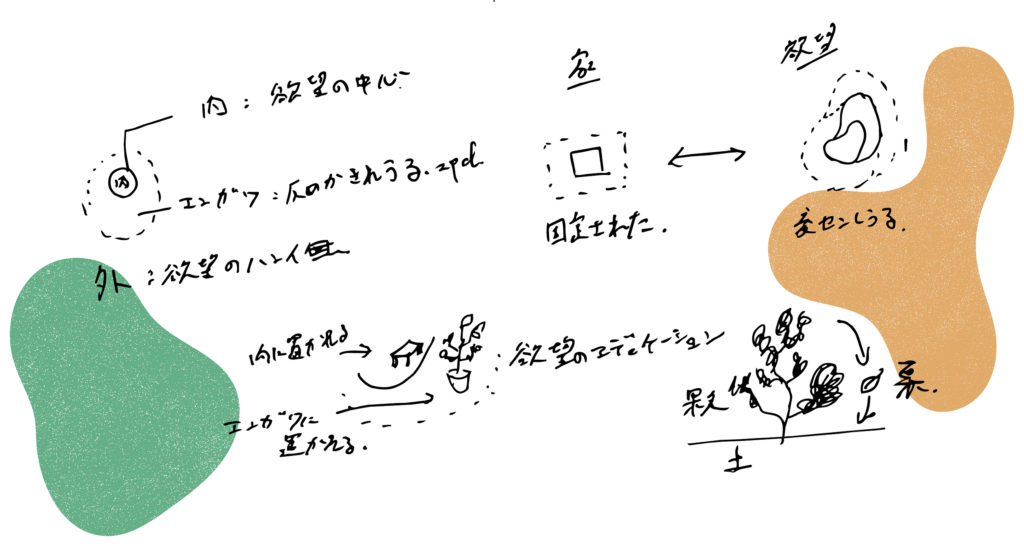 内：欲望の中心
内
エンガワ：仄めかされうる.zpd
外：欲望のハンイ
家
固定された.
欲望
変センしうる.
内に置かれる
エンガワに
置かれる.
：欲望のエディケーション
土